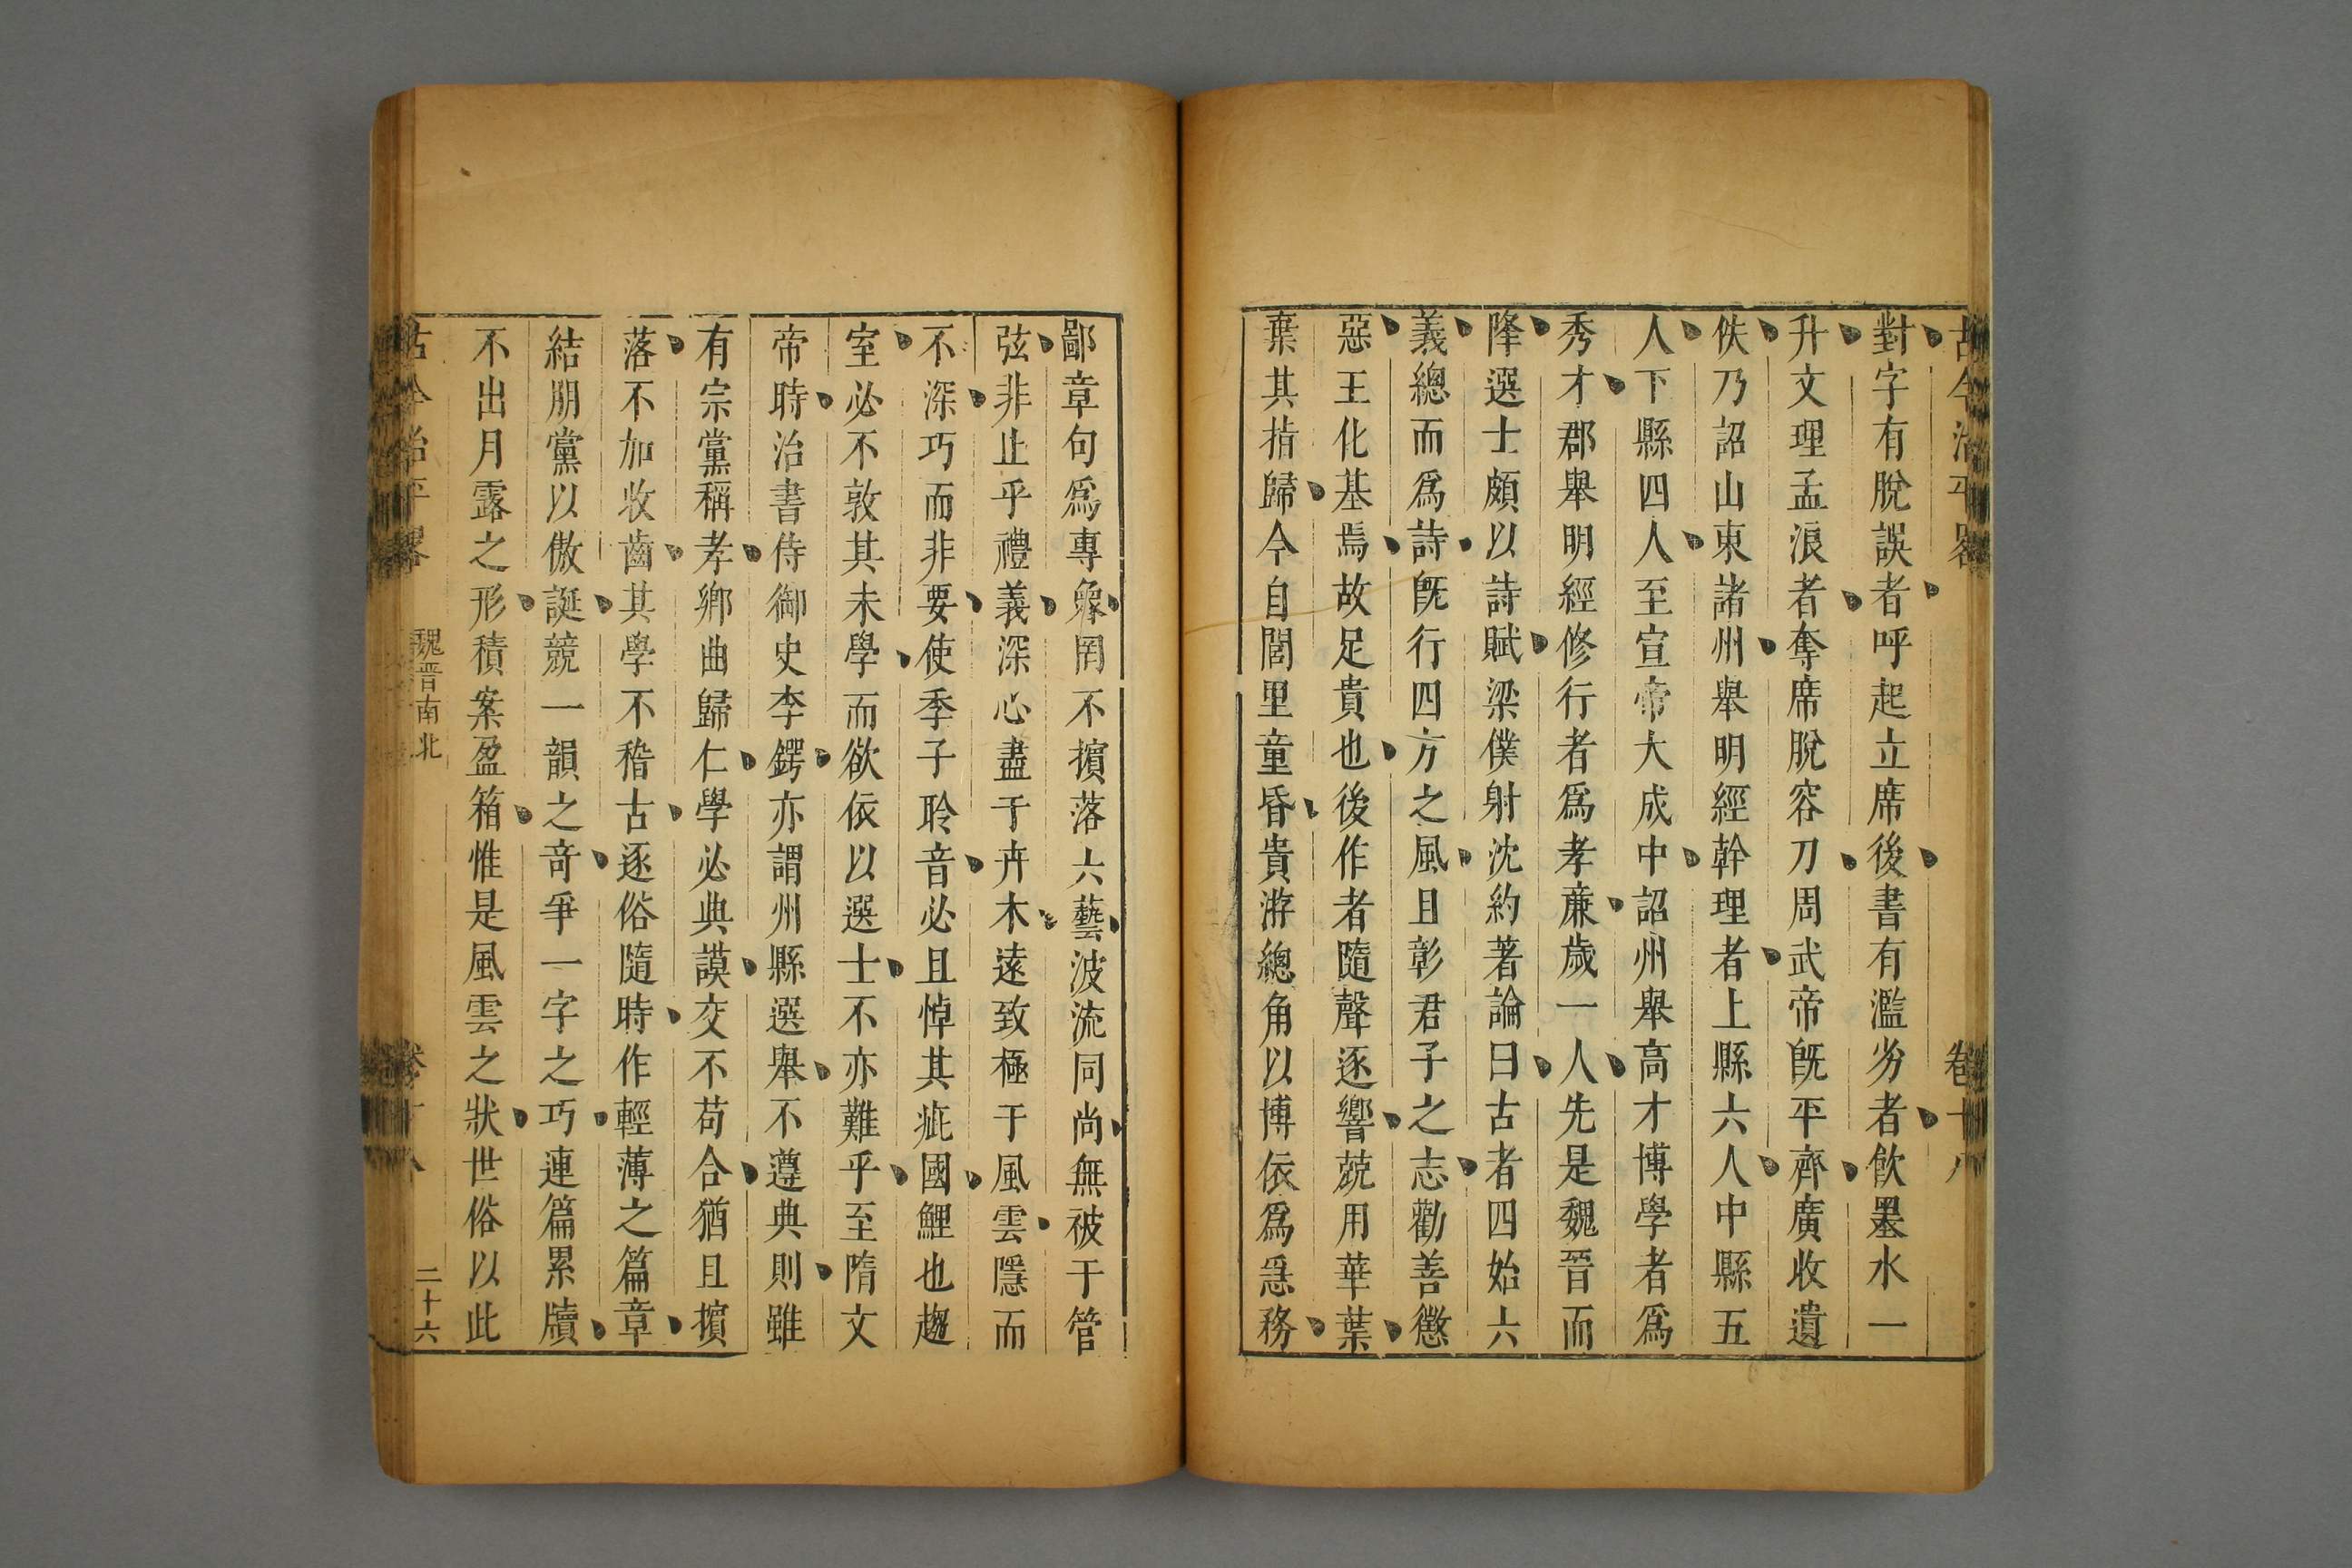 古今治平畧 卷十八
對字有脫誤者呼起立席後書有濫劣者飲墨水一
升文理孟浪者奪席脫容刀周武帝旣平齊廣收遺
佚乃詔山東諸州舉明經幹理者上縣六人中縣五
人下縣四人至宣帝大成中詔州舉高才博學者爲
秀才郡舉明經修行者爲孝廉歲一人先是魏晉而
降選士頗以詩賦梁僕射沈約著論曰古者四始六
義總而爲詩旣行四方之風且彰君子之志勸善懲
惡王化基焉故足貴也後作者隨聲逐響兢用華葉
棄其指歸今自閭里童昏貴游總角以博依爲急務
鄙章句爲專䝉罔不擯落六藝波流同尚無被于管
弦非止乎禮義深心盡于卉木遠致極于風雲隱而
不深巧而非要使季子聆音必且悼其疵國鯉也趨
室必不敦其未學而欲依以選士不亦難乎至隋文
帝時治書侍御史李鍔亦謂州縣選舉不遵典則雖
有宗黨稱孝鄉曲歸仁學必典謨交不苟合猶且擯
落不加收齒其學不稽古逐俗隨時作輕薄之篇章
結朋黨以傲誕競一韻之奇爭一字之巧連篇累牘
不出月露之形積案盈箱惟是風雲之狀世俗以此
古今治平畧 魏晉南北 卷十八 二十六